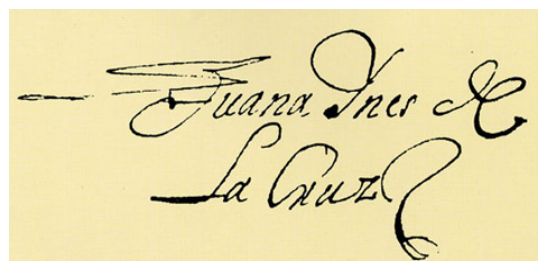 Juana Ynes de
La Cruz